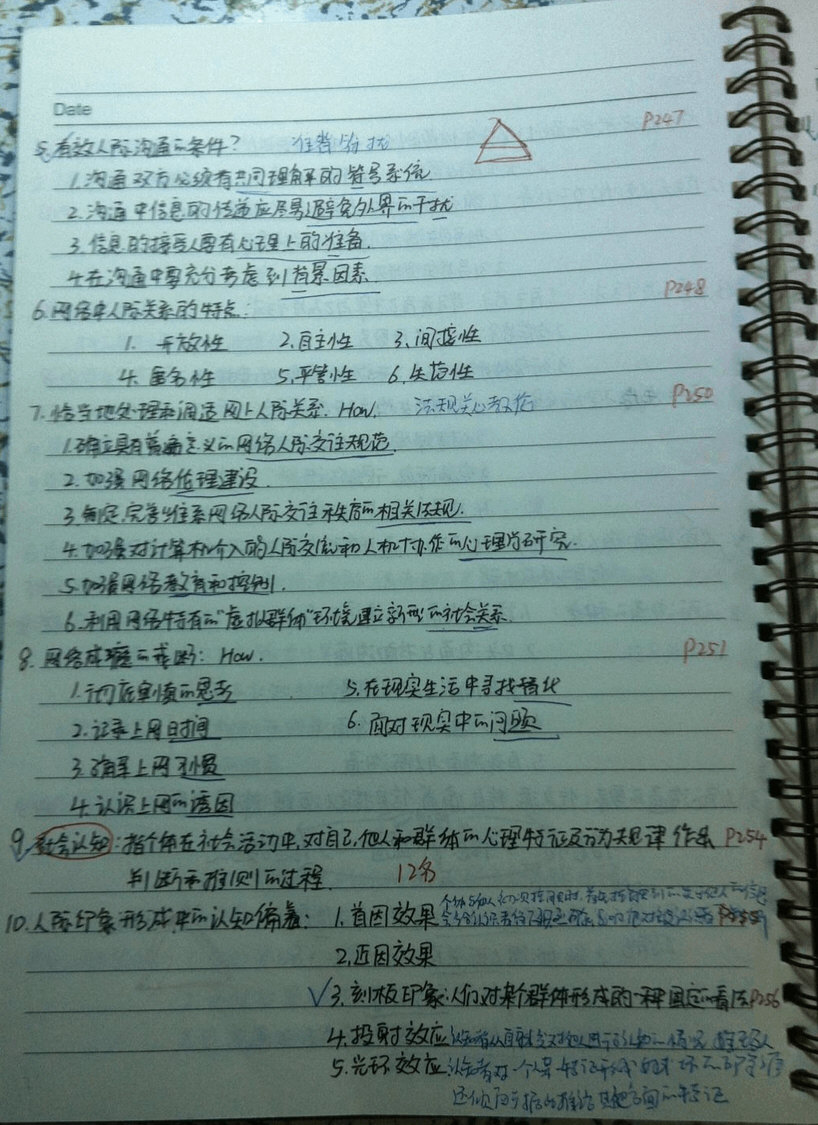 Date
5.有效人际沟通的条件? 准背符扰 P247
1.沟通双方必须有共同理解的符号系统
2.沟通中信息的传递应尽量避免外界的干扰
3.信息的接受人要有心理上的准备.
4.在沟通中要充分考虑到背景因素
6.网络中人际关系的特点: P248
1.开放性 2.自主性 3.间接性
4.匿名性 5.平等性 6.失范性
7.恰当地处理和调适网上人际关系. How. P250
1.确立具有普遍意义的网络人际交往规范.
2.加强网络伦理建设.
3.制定,完善维系网络人际交往秩序的相关法规.
4.加强对计算机介入的人际交流和人机协作的心理学研究.
5.加强网络教育和控制.
6.利用网络特有的"虚拟群体"环境建立新型的社会关系.
8.网络成瘾的戒断: How. P251
1.彻底审慎的思考 5.在现实生活中寻找替代
2.记录上网时间 6.面对现实中的问题
3.确军上网习惯
4.认识上网的诱因
9.社会认知:指个体在社会活动中,对自己,他人和群体的心理特征及行为规律作出 P254
判断和推测的过程. 12名
10.人际印象形成中的认知偏差: 1.首因效果
2.近因效果
3.刻板印象:人们对某个群体形成的一种固定的看法 P256
4.投射效应
5.光环效应